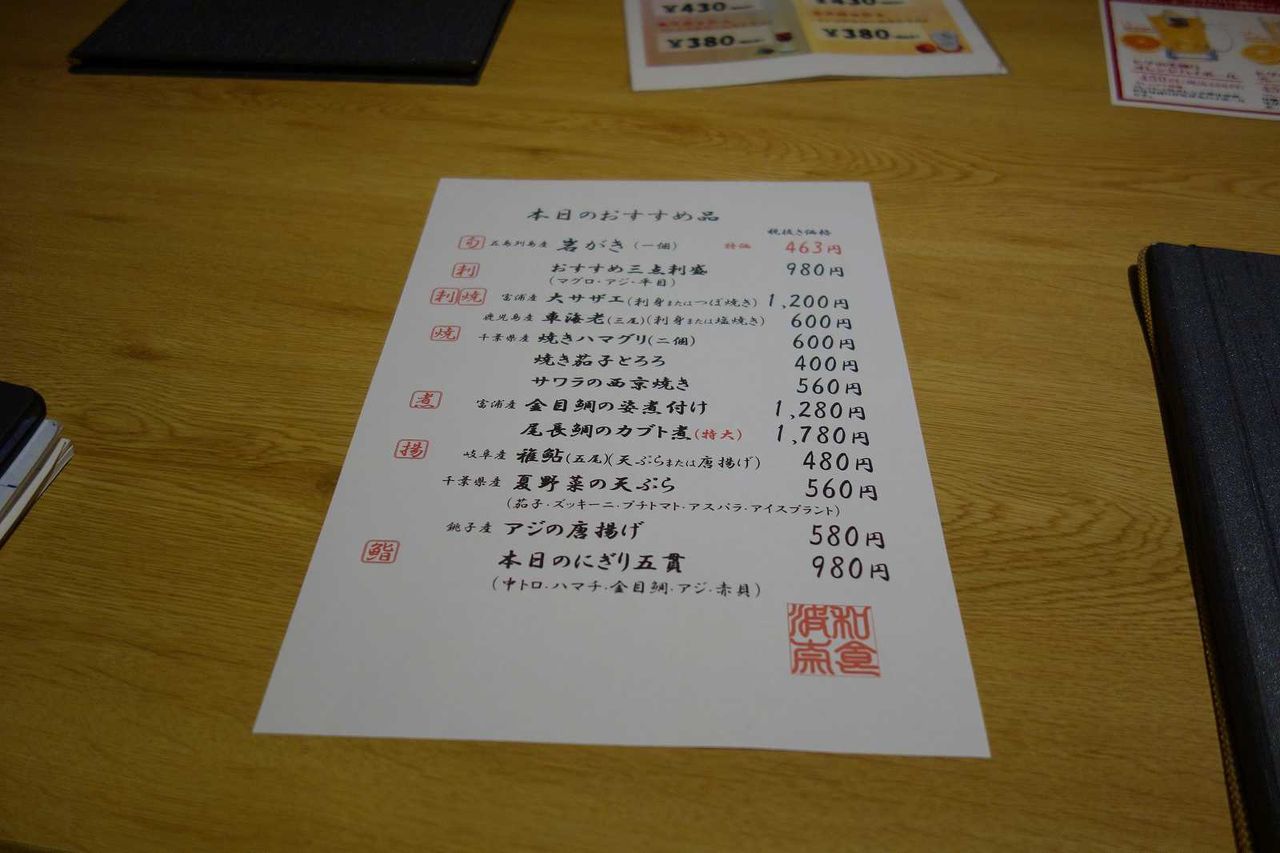 ¥430
¥380
¥430
¥380
本日のおすすめ品
税抜き価格
旬 五島列島産 岩がき(一個) 特価 463円
刺 おすすめ三点刺盛 980円
(マグロ・アジ・平目)
刺 焼 富浦産 大サザエ(刺身またはつぼ焼き) 1,200円
鹿児島産 車海老(三尾)(刺身または塩焼き) 600円
焼 千葉県産 焼きハマグリ(二個) 600円
焼き茄子とろろ 400円
サワラの西京焼き 560円
煮 富浦産 金目鯛の姿煮付け 1,280円
尾長鯛のカブト煮(特大) 1,780円
揚 岐阜産 稚鮎(五尾)(天ぷらまたは唐揚げ) 480円
千葉県産 夏野菜の天ぷら 560円
(茄子・ズッキーニ・プチトマト・アスパラ・アイスプラント)
銚子産 アジの唐揚げ 580円
鮨 本日のにぎり五貫 980円
(中トロ・ハマチ・金目鯛・アジ・赤貝)
和食
波奈